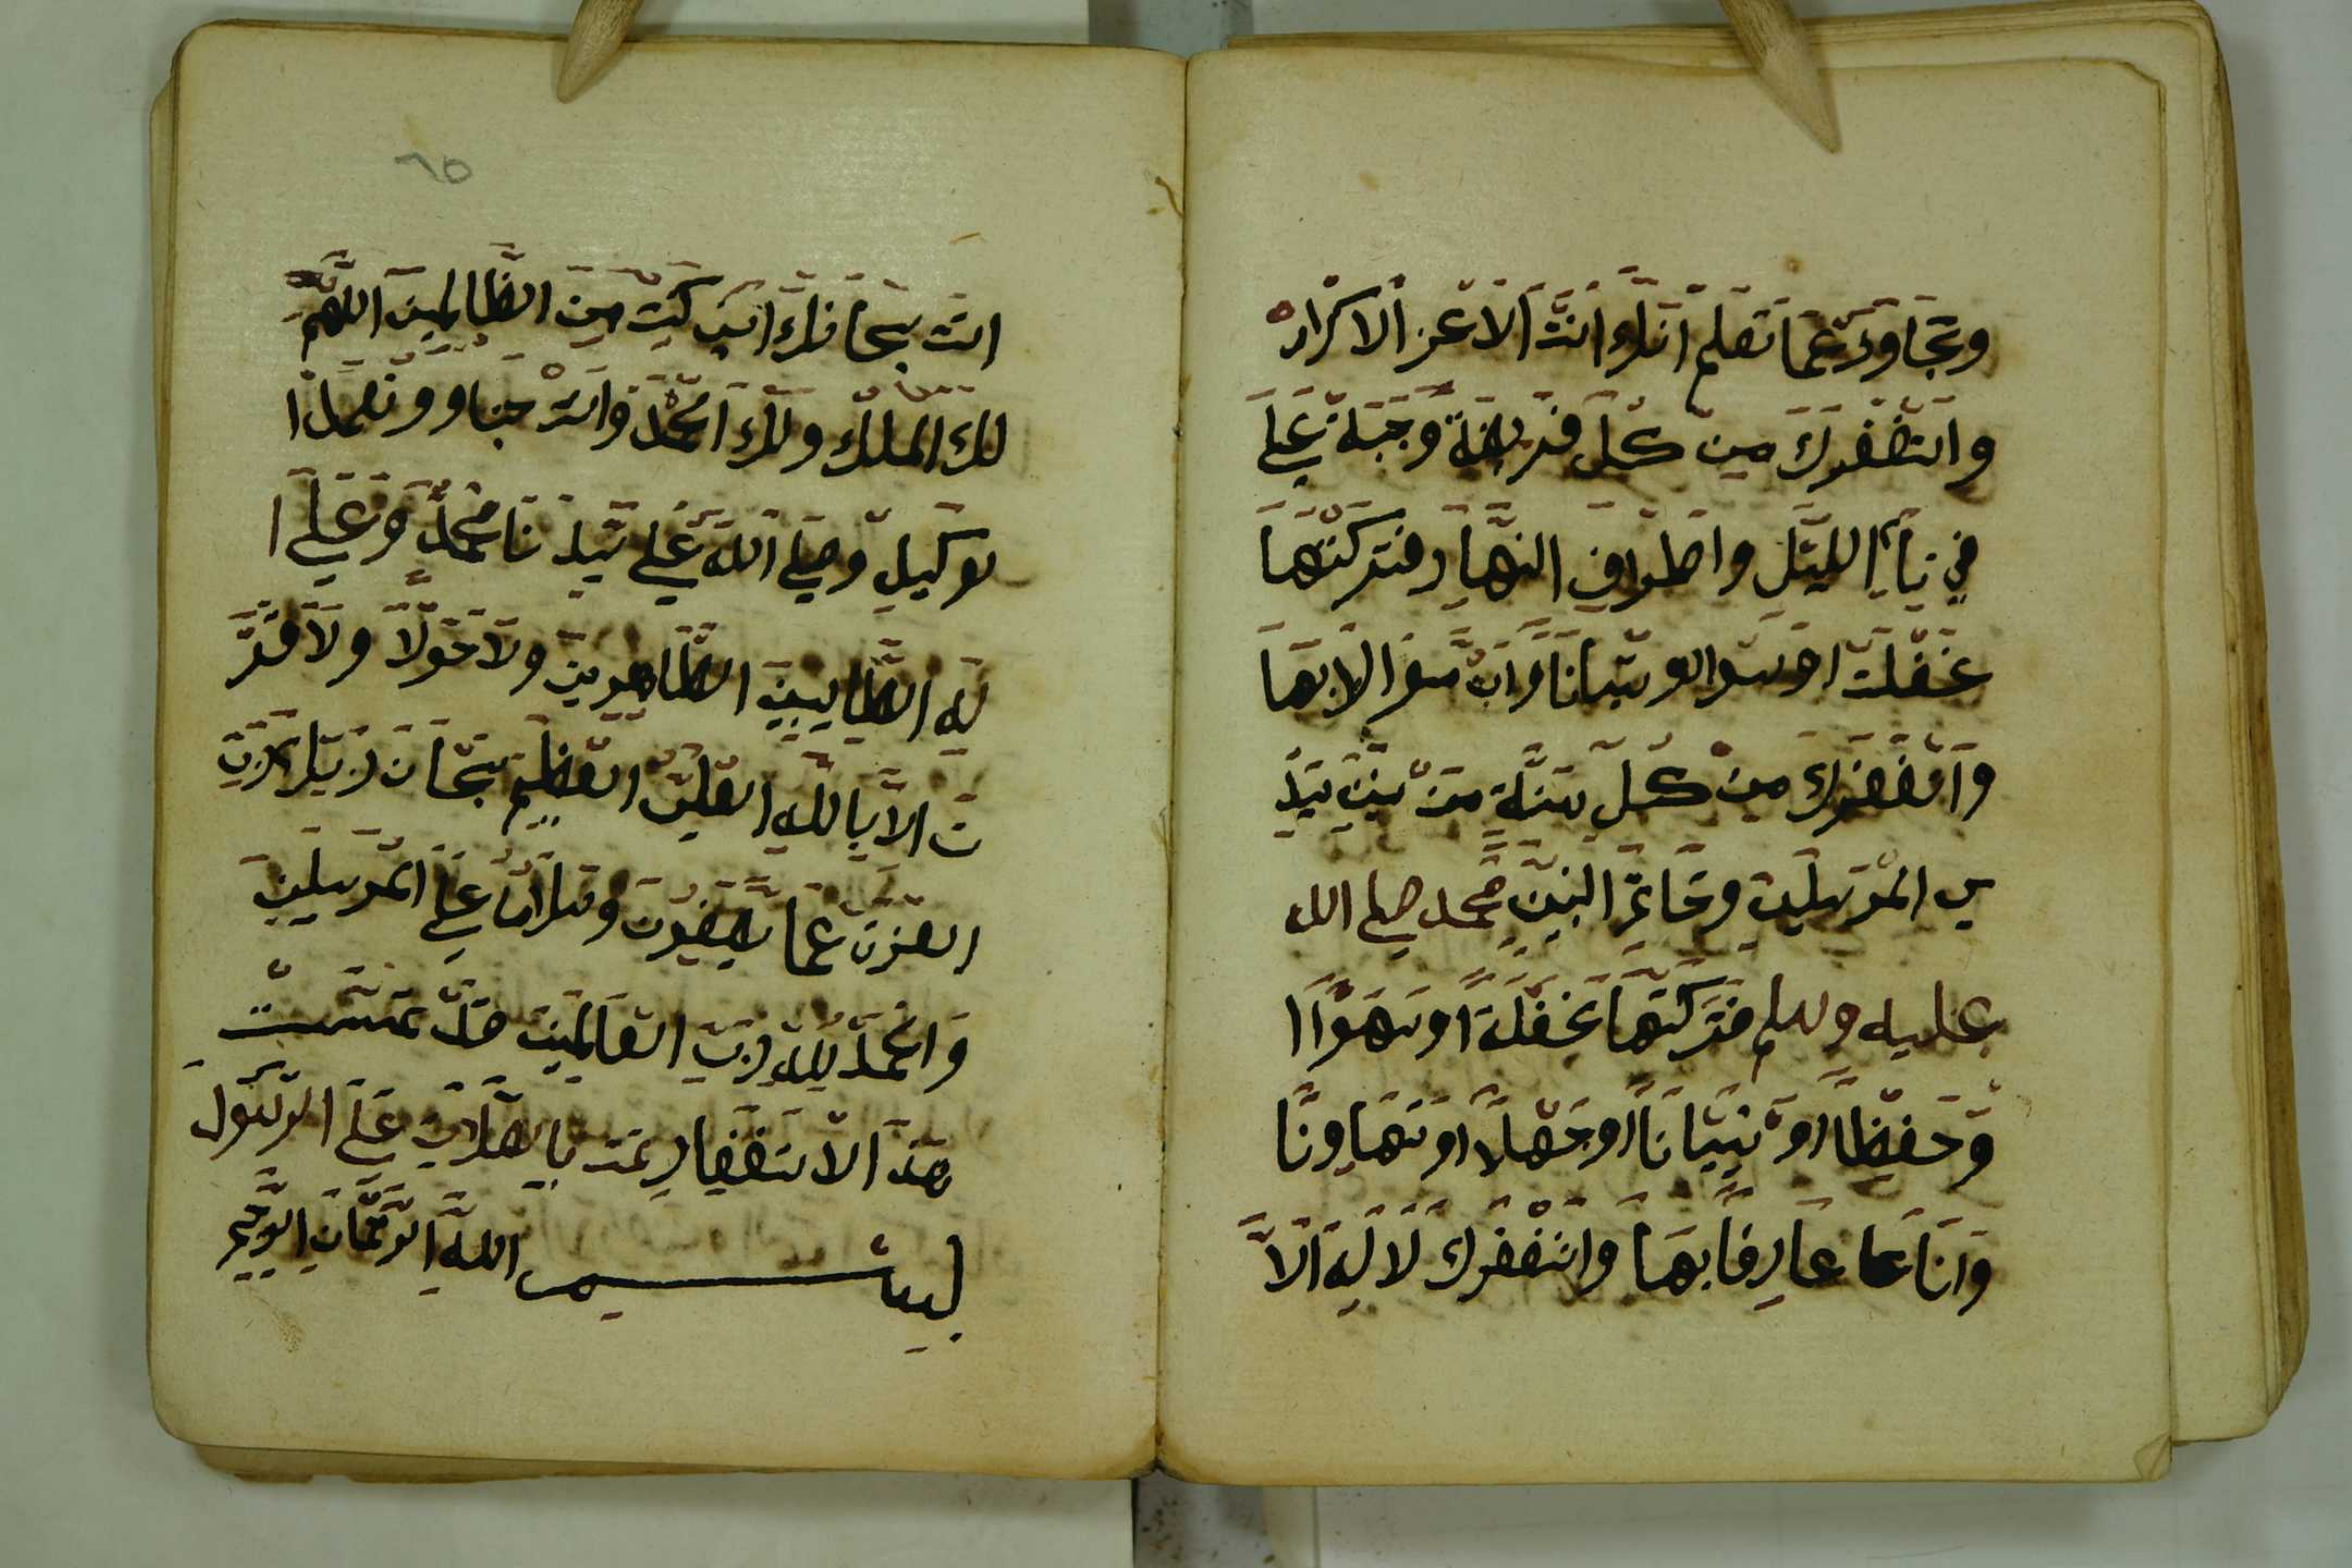 وتجاوز عما تعلم انك انت الاعز الاكرام
واستغفرك من كل فريضة وجبة علي
في نيام الليل واطراف النهار فتركتها
غفلت او سوا او نسيانا وان مسوا لا بها
واستغفرك من كل سنة من سنن سيد
المرسلين وخاتم النبين محمد صلى الله
عليه وسلم فتركتها غفلة او سهوا ا
وحفيظا او نسيانا او جهلا او تهاونا
وانا عما عارفا بها واستغفرك لا له الا
انت سبحانك اني كنت من الظالمين اللهم
لك الملك ولك الحمد وانت حسبنا وونعم ا
لوكيل وصلى الله على سيدنا محمد وعلى ا
له الطايبين الطاهرين ولا حولا ولا قو
ت الا بالله العلي العظيم سبحان ربك رب
العزت عما يصفون وسلام على المرسلين
والحمد لله رب العالمين قد تمت
هذا الاستغفار تمت بالصلات على الرسول
بسم الله الرحمان الرحيم
٦٥